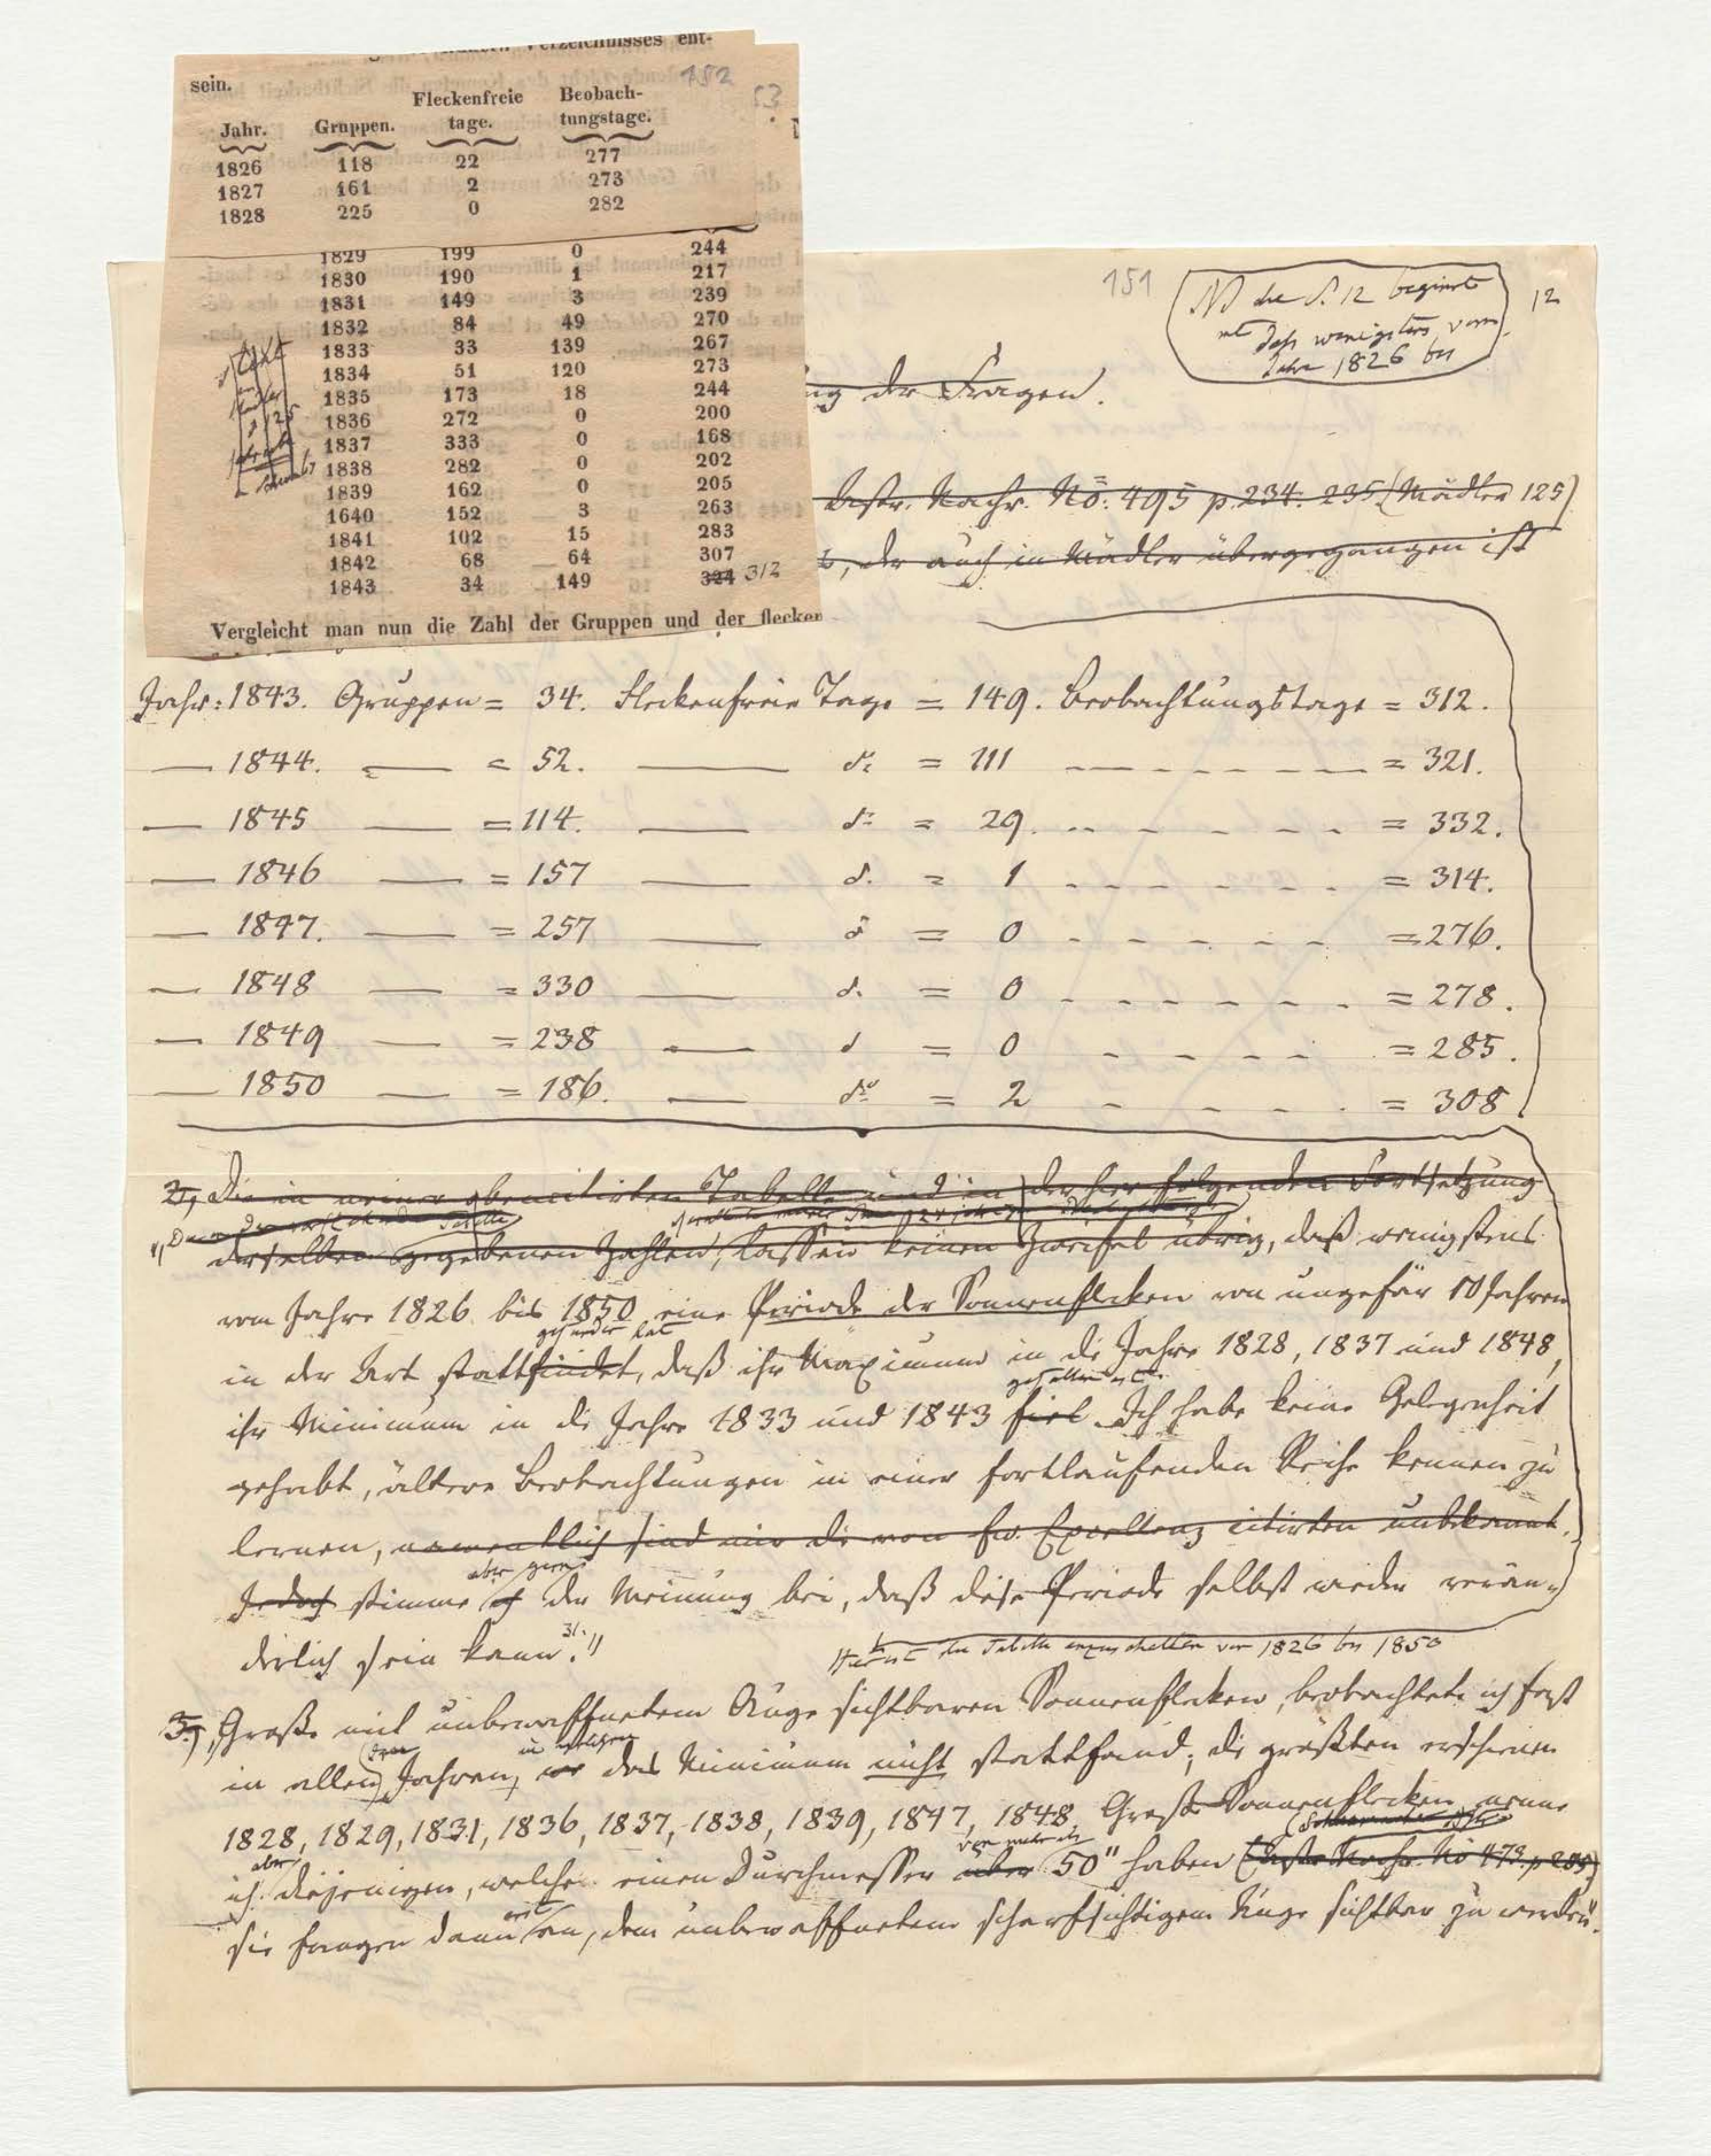 Verzeichnisses ent-
sein.
152
53
Jahr. Gruppen. Fleckenfreie tage. Beobach-tungstage.
1826 118 22 277
1827 161 2 273
1828 225 0 282
1829 199 0 244
1830 190 1 217
1831 149 3 239
1832 84 49 270
1833 33 139 267
1834 51 120 273
1835 173 18 244
1836 272 0 200
1837 333 0 168
1838 282 0 202
1839 162 0 205
1640 152 3 263
1841 102 15 283
1842 68 64 307
1843 34 149 324 312
Vergleicht man nun die Zahl der Gruppen und der flecken
151
12
die S. 12 beginnt
mit daß wenigstens vom
Jahre 1826 bis
der Fragen.
Astr. Nachr. No. 495 p. 234. 235 (Mädler 125)
, der auch in Mädler übergegangen ist
Jahr: 1843. Gruppen = 34. Fleckenfreie Tage = 149. Beobachtungstage = 312.
— 1844. — = 52. — do = 111 - - - = 321.
— 1845 — = 114. — do = 29. - - - = 332.
— 1846 — = 157 — do = 1 - - - = 314.
— 1847. — = 257 — do = 0 - - - = 276.
— 1848 — = 330 — do = 0 - - - = 278.
— 1849 — = 238 — do = 0 - - - = 285.
— 1850 — = 186. — do = 2 - - - = 308
2, Die in meiner obencitirten Tabelle und in der hier folgenden Fortsetzung
derselben gegebenen Zahlen, lassen keinen Zweifel übrig, daß wenigstens
vom Jahre 1826 bis 1850 eine Periode der Sonnenflecken von ungefär 10 Jahren
gefunden hat
in der Art stattfindet, daß ihr Maximum in die Jahre 1828, 1837 und 1848,
gefallen ist.
ihr Minimum in die Jahre 1833 und 1843 fiel. Ich habe keine Gelegenheit
gehabt, ältere Beobachtungen in einer fortlaufenden Reihe kennen zu
lernen, namentlich sind mir die von Ew. Excellenz citirten unbekannt.
aber gern
Jedoch stimme ich der Meinung bei, daß diese Periode selbst wieder verän-
derlich sein kann."
Hier ist die Tabelle einzuschalten von 1826 bis 1850
3, Große mit unbewaffnetem Auge sichtbaren Sonnenflecken, beobachtete ich fast
in welchen
in allen Jahren, wo das Minimum nicht stattfand; die größten erschienen
1828, 1829, 1831, 1836, 1837, 1838, 1839, 1847, 1848. Große Sonnenflecken nenne
aber von mehr als
ich diejenigen, welche einen Durchmesser über 50" haben (Astr. Nachr. No 473. p 285)
erst
sie fangen dann an, dem unbewaffneten scharfsichtigem Auge sichtbar zu werden.